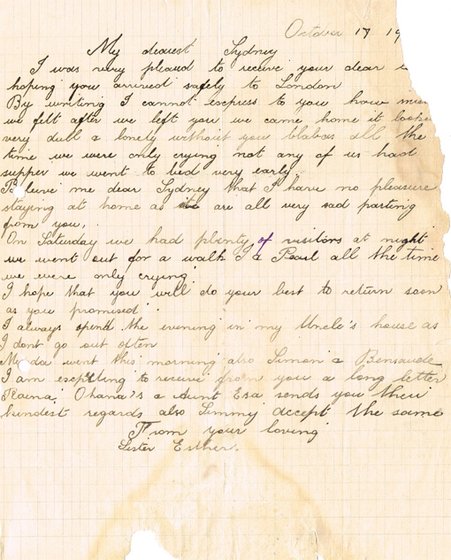 October 17 19
My dearest Sydney
I was very pleasd to receive your dear
hoping you arrived safely to London
By writing I cannot express to you how
we felt after we left you we came home it looked
very dull & lonely without you all the
time we were only crying not any of us had
supper we went to bed very early
Believe me dear Sydney that I have no pleasure
staying at home as are all very sad parting
from you,
On Saturday we had plenty of visitors at night
we went out for a walk I & Pearl all the time
we were only crying
I hope that you will do your best to return soon
as you promised
I always spend the evening in my Uncle's house as
I dont go out often
My da went this morning also Simon & Bensaude
I am expecting to receive from you a long letter
Raina, Ohana's & aunt Esa sends you their
kindest regards also Simmy accept the same
From your loving
Sister Esther.